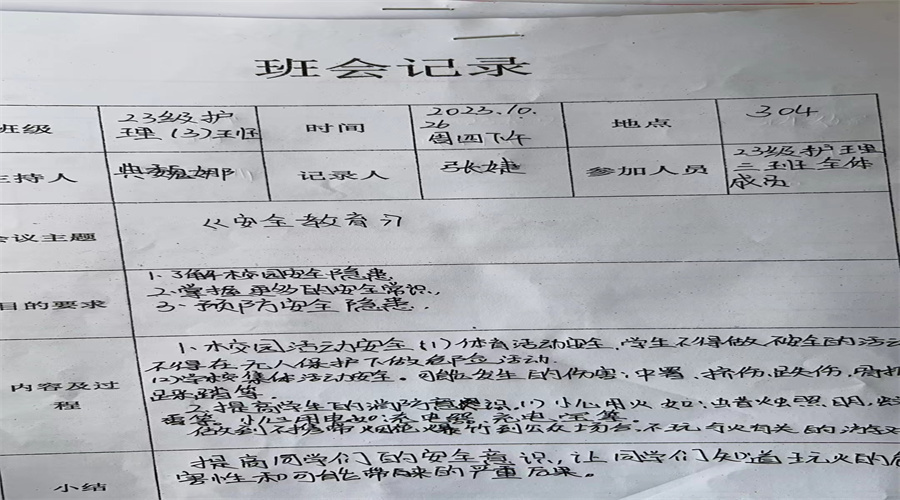 班会记录
班级 23级护理(3)班 时间 2023.10.26 周四下午 地点 304
主持人 典魏娜 记录人 张婕 参加人员 23级护理三班全体成员
会议主题 《安全教育》
目的要求 1.了解校园安全隐患
2.掌握更多的安全常识,
3.预防安全隐患.
内容及过程 1.校园活动安全.(1)体育活动安全.学生不得做不安全的活动
不得在无人保护下做危险活动.
(2)学校集体活动安全。可能发生的伤害:中暑、挤伤、跌伤、
踩踏等.
2.提高学生的消防意识.(1)小心用火 如:蜡烛照明,
等.小心用电如:充电器、充电宝等.
做到不携带烟花爆竹到公众场合,不玩与火有关的
小结 提高同学们的安全意识,让同学们知道玩火的危
害性和可能带来的严重后果。